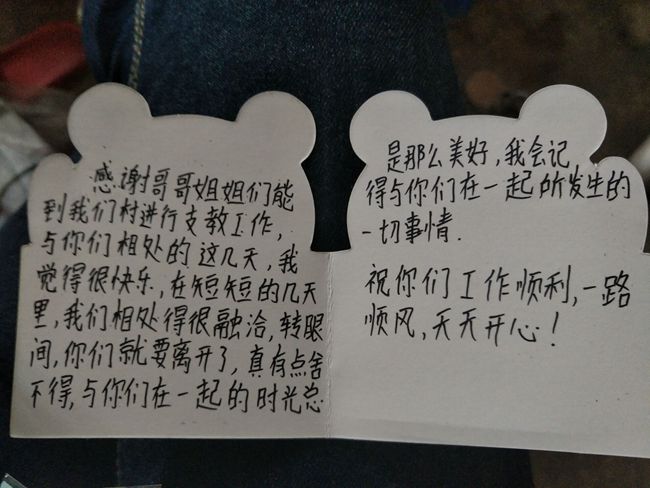 感谢哥哥姐姐们能
到我们村进行支教工作,
与你们相处的这几天,我
觉得很快乐,在短短的几天
里,我们相处得很融洽,转眼
间,你们就要离开了,真有点舍
不得,与你们在一起的时光总
是那么美好,我会记
得与你们在一起所发生的
一切事情.
祝你们工作顺利,一路
顺风,天天开心!